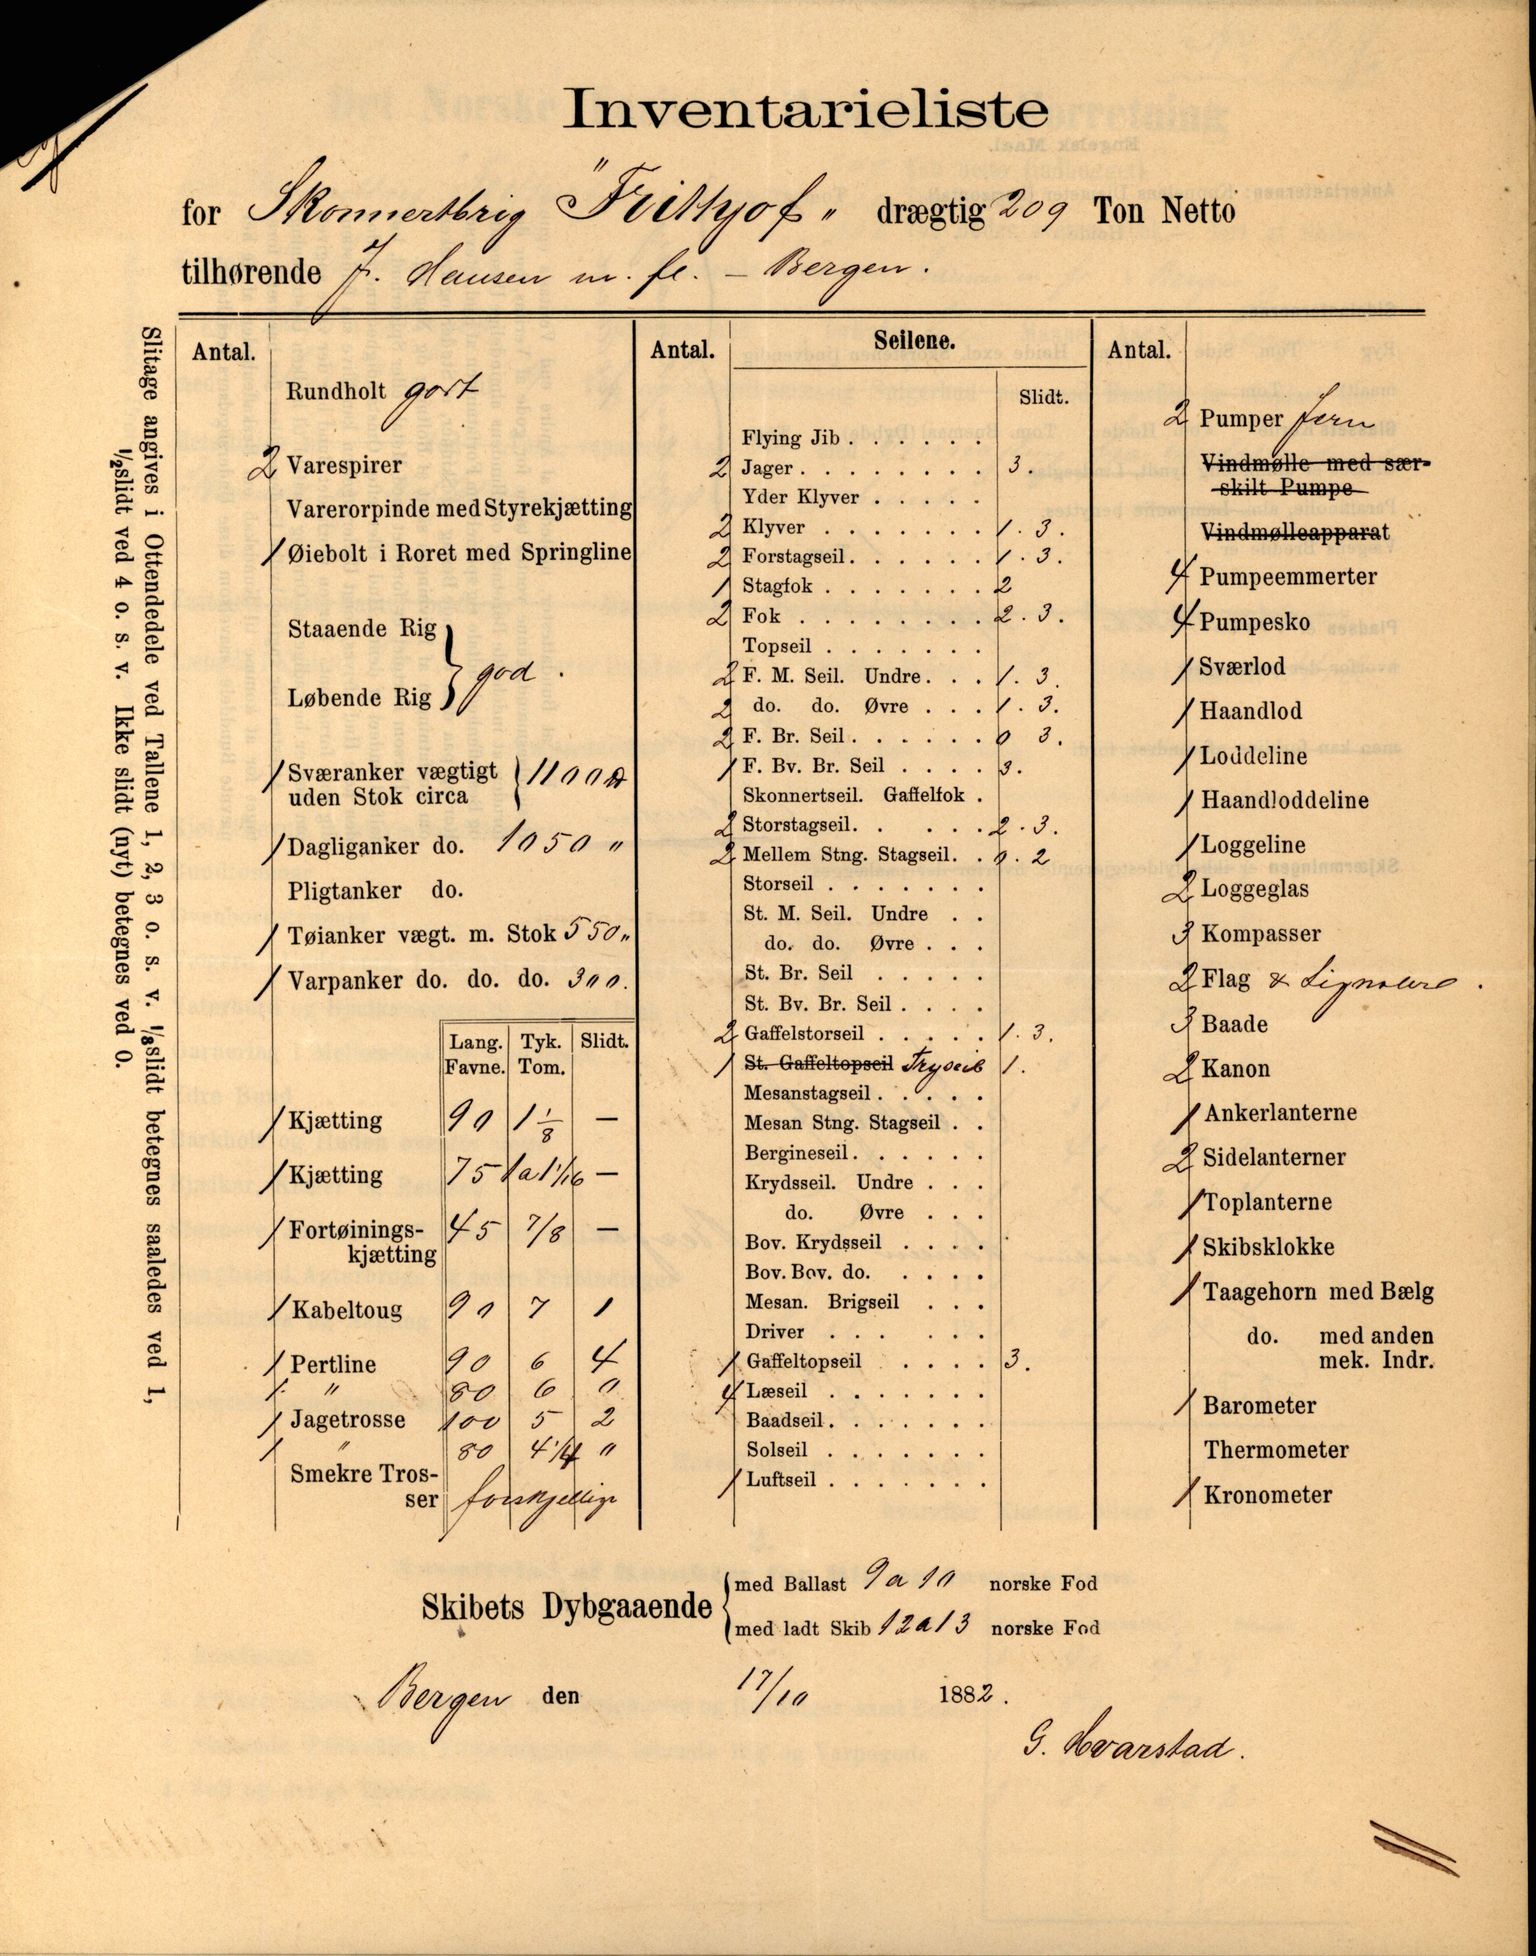 Inventarieliste
for Skonnertbrig "Frithjof" drægtig 209 Ton Netto
tilhørende J. Hansen m. fl. – Bergen.
Slitage angives i Ottendedele ved Tallene 1, 2, 3 o. s. v. ⅛slidt betegnes saaledes ved 1,
½slidt ved 4 o. s. v. Ikke slidt (nyt) betegnes ved 0.
Antal.
Rundholt godt
2 Varespirer
Varerorpinde med Styrekjætting
1 Øiebolt i Roret med Springline
Staaende Rig
Løbende Rig } god.
1 Sværanker vægtigt
uden Stok circa } 1100 ℔
1 Dagliganker do. 1050 "
Pligtanker do.
1 Tøianker vægt. m. Stok 550 "
1 Varpanker do. do. do. 300.
Lang. Tyk. Slidt.
Favne. Tom.
1 Kjætting 90 1 1/8 —
1 Kjætting 75 1 a 1 1/16 —
1 Fortøinings-
kjætting 45 7/8 —
1 Kabeltoug 90 7 1
1 Pertline 90 6 4
1. " 80 6 0
1 Jagetrosse 100 5 2
1 " 80 4 1/4 0
Smekre Tros-
ser forskjellige
Antal. Seilene.
Slidt.
Flying Jib . . . . . .
2 Jager . . . . . . . . 3.
Yder Klyver . . . . .
2 Klyver . . . . . . . 1. 3.
2 Forstagseil . . . . . . 1. 3.
1 Stagfok . . . . . . . 2
2 Fok . . . . . . . . 2. 3.
Topseil . . . . . . .
2 F. M. Seil. Undre . . . 1. 3.
2 do. do. Øvre . . . 1. 3.
2 F. Br. Seil . . . . . . 0 3.
1 F. Bv. Br. Seil . . . . 3.
Skonnertseil. Gaffelfok .
2 Storstagseil . . . . . 2. 3.
2 Mellem Stng. Stagseil . . 0. 2
Storseil . . . . . . .
St. M. Seil. Undre . .
do. do. Øvre . . .
St. Br. Seil . . . . .
St. Bv. Br. Seil . . . .
2 Gaffelstorseil . . . . . 1. 3.
1 St. Gaffeltopseil Tryseil 1.
Mesanstagseil . . . . .
Mesan Stng. Stagseil . .
Bergineseil . . . . . .
Krydsseil. Undre . . .
do. Øvre . . .
Bov. Krydsseil . . . .
Bov. Bov. do. . . . .
Mesan. Brigseil . . .
Driver . . . . . .
1 Gaffeltopseil . . . . 3.
4 Læseil . . . . . . .
Baadseil . . . . . . .
Solseil . . . . . . .
1 Luftseil . . . . . . .
Antal.
2 Pumper Jern
Vindmølle med sær-
skilt Pumpe
Vindmølleapparat
4 Pumpeemmerter
4 Pumpesko
1 Sværlod
1 Haandlod
1 Loddeline
1 Haandloddeline
1 Loggeline
2 Loggeglas
3 Kompasser
2 Flag & Signalere.
3 Baade
2 Kanon
1 Ankerlanterne
2 Sidelanterner
1 Toplanterne
1 Skibsklokke
1 Taagehorn med Bælg
do. med anden
mek. Indr.
1 Barometer
Thermometer
1 Kronometer
Skibets Dybgaaende { med Ballast 9 a 10 norske Fod
med ladt Skib 12 a 13 norske Fod
Bergen den 17/10 1882.
G. Hvarstad.